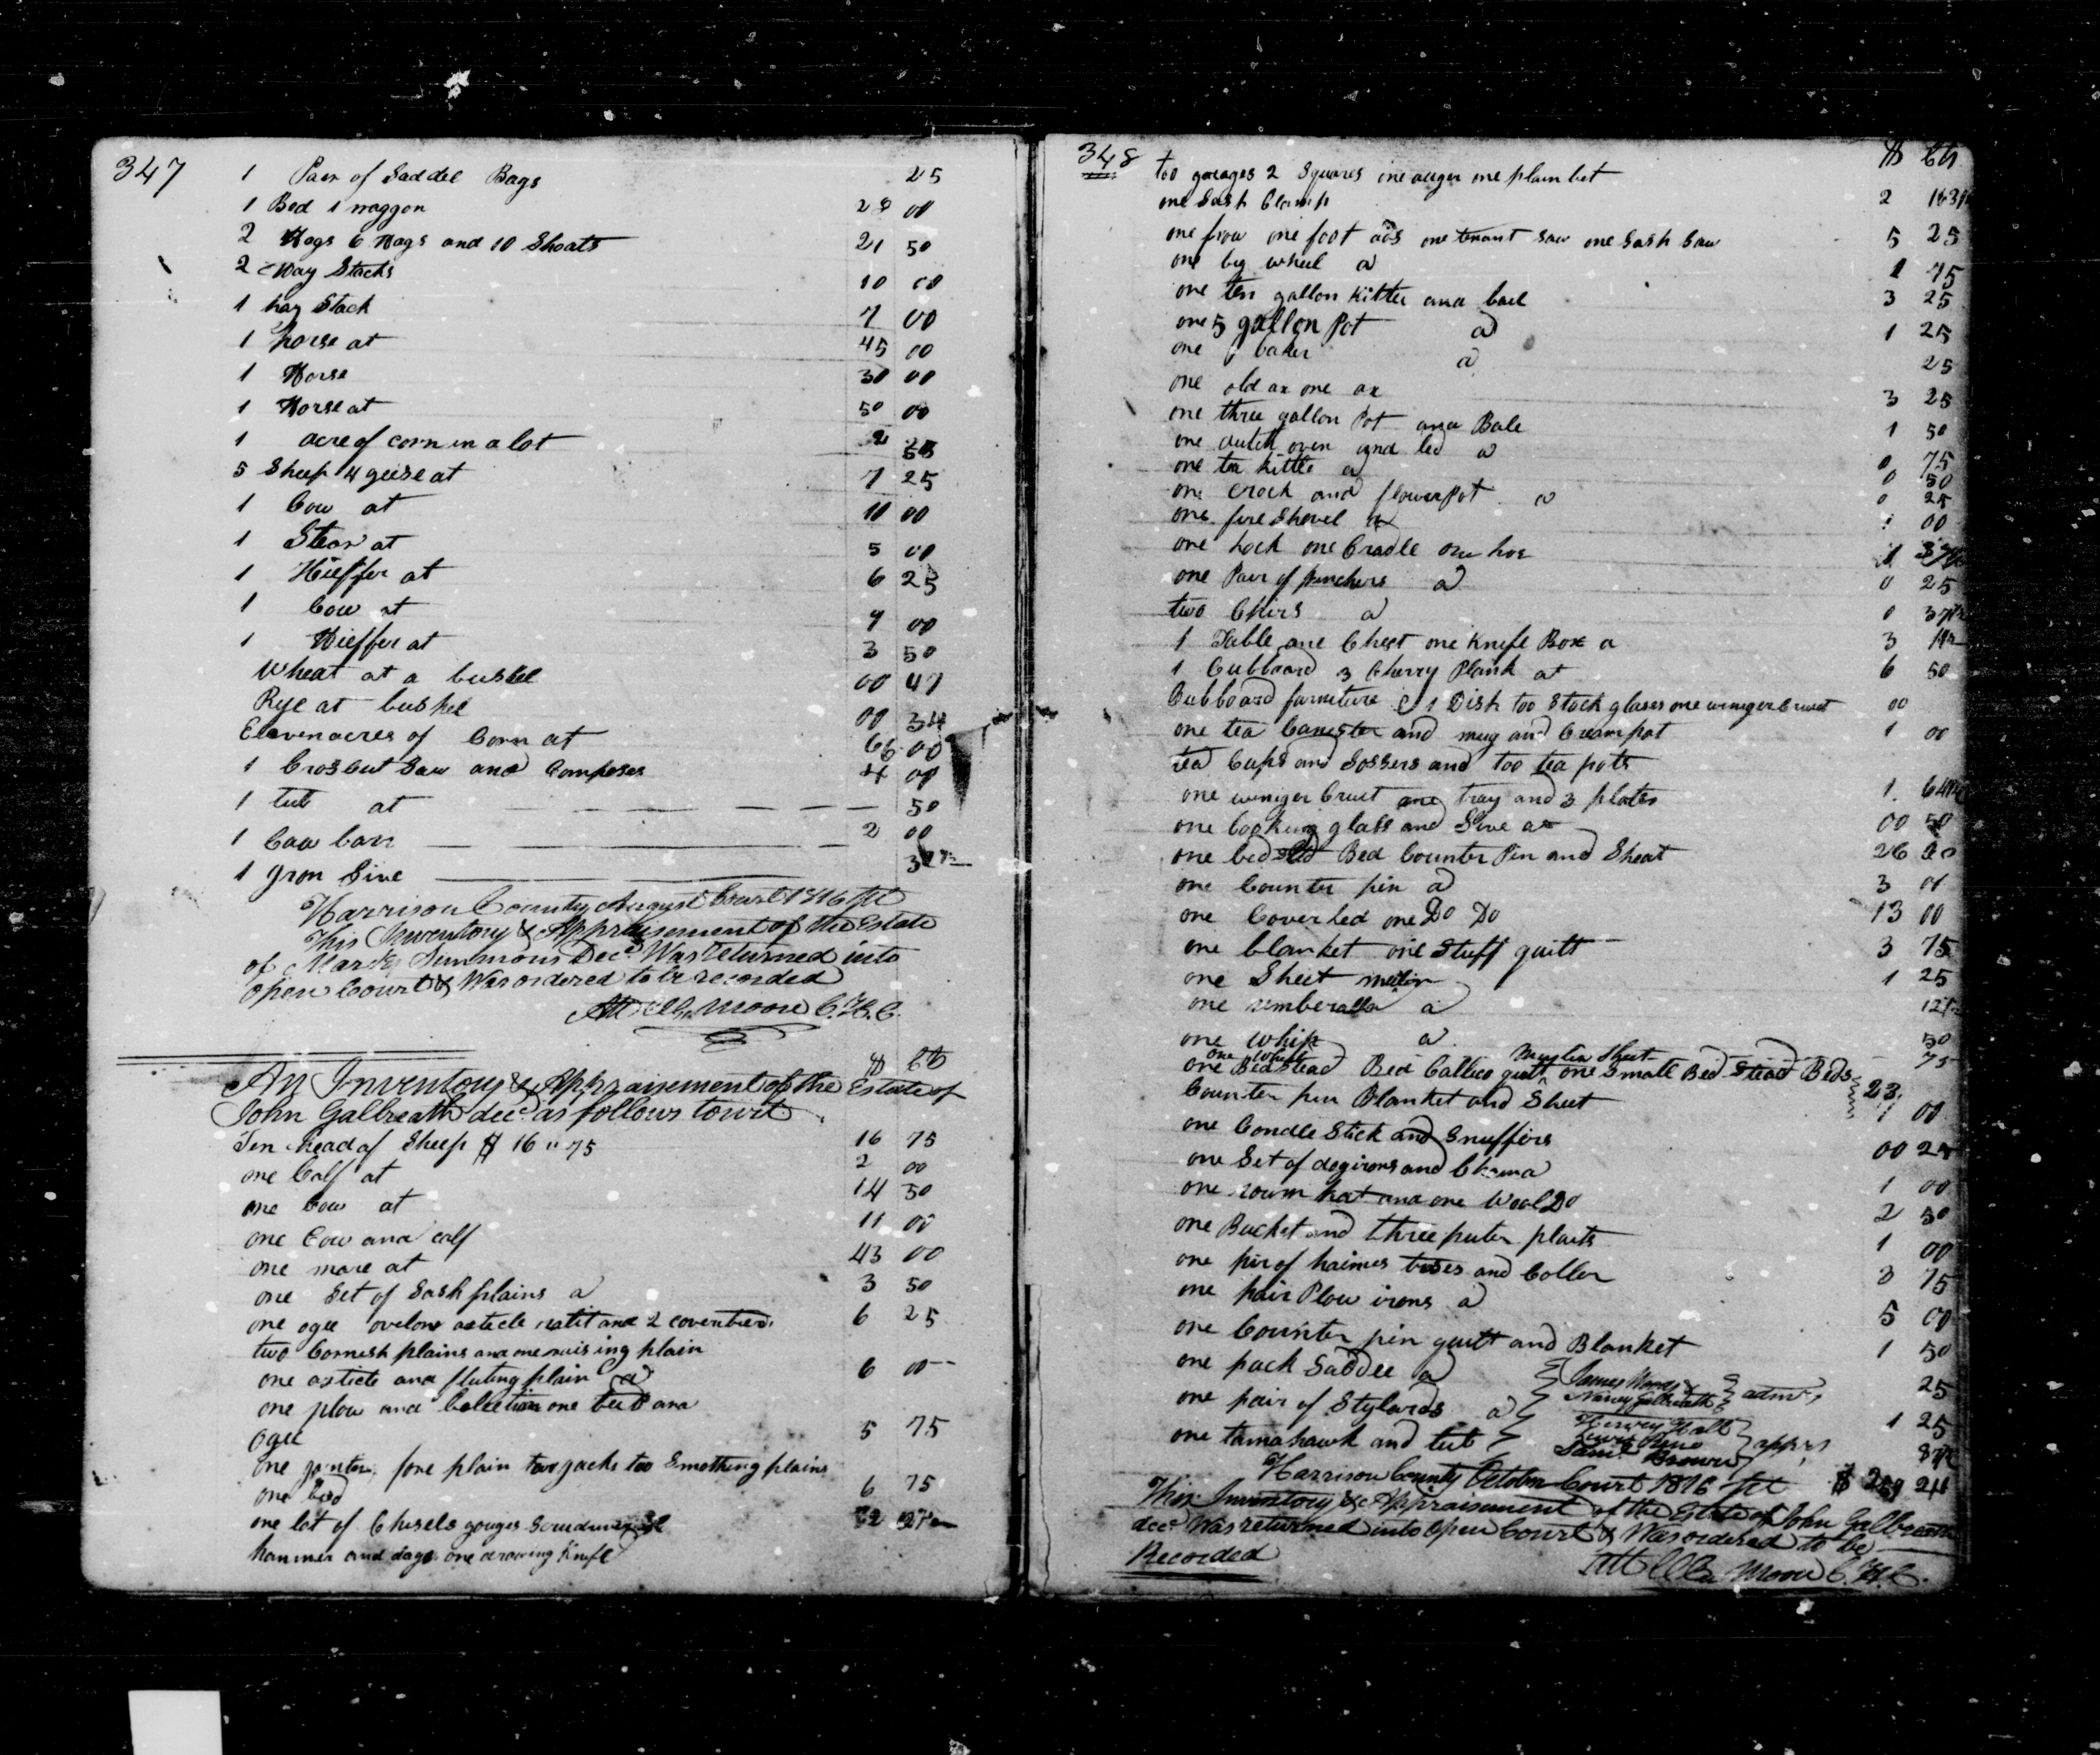 347
1 Pair of Saddel Bags 25
1 Bed 1 waggon 20 00
2 Hogs 6 Hogs and 10 Shoats 21 50
2 Hay Stacks 10 00
1 hay Stack 7 00
1 horse at 45 00
1 Horse 30 00
1 Horse at 50 00
1 acre of corn in a lot 2
5 Sheep 4 geese at 7 25
1 Cow at 10 00
1 Stear at 5 00
1 Hieffer at 6 25
1 Cow at 9 00
1 Hieffer at 3 50
Wheat at a bushel 00 47
Rye at bushel 00 34
Elevenacres of Corn at 66 00
1 Croscut Saw and Compases 4 00
1 tub at 50
1 2 00
1 Iron Sive
Harrison County August Court 1816
This Inventory & Appraisement of the Estate
of Simmons Decd Was returned into
open Court & Was ordered to be recorded
Att Moore C.H.C.
$ Cts
An Inventory & Appraisement of the Estate of
John Galbreath decd as follows towit
Ten head of Sheep $ 16 " 75 16 75
one Calf at 2 00
one Cow at 14 50
one Cow and calf 11 00
one mare at 43 00
one Set of Sash plains a 3 50
one ogee asticle and 2 6 25
two Cornish plains and one raising plain
one asticle and fluting plain a 6 00
one plow and one bead and
ogee 5 75
one fore plain two jacks too Smothing plains
one 6 75
one lot of Chisels gouges
hammer and one drawing Knife
348 $ Cts
too 2 Squares one auger one plain bit
one Sash Clamp 2
one frow one foot ads one tenant saw one Sash Saw 5 25
one big wheel a 1 75
one ten gallon Kittle and bail 3 25
one 5 gallon Pot a 1 25
one baker a 25
one old ax one ax 3 25
one three gallon Pot and Bale 1 50
one dutch oven and led a 0 75
one tea kittle a 0 50
one crock and flowerpot a 0 25
one fire Shovel a 1 00
one one Cradle one hoe 1
one Pair of pinchers a 0 25
two Chirs a 0 37 1/2
1 Table one Chest one Knife Box a 3
1 Cubboard 3 Cherry Plank at 6 50
Cubboard furniture 1 Dish too Stock glases one 00
one tea Canester and mug and Creampot 1 00
tea Cups and Sossers and too tea pots
one Cruet one tray and 3 plates 1
one Looking glass and Sive at 00 50
one bed Bed Counter Pin and Sheat 26
one Counter pin a 3 00
one Coverled one Do Do 13 00
one blanket one Stuff quilt 3 75
one Sheet 1 25
one umberalla a 12 1/2
one whip a 50
one wheel muslin Sheet 75
one Bedstead Bed Callico quilt one Small Bed Stead Beds
Counter pin Blanket and Sheet 23
1 00
one Condle Stick and Snuffers
one Set of dogirons and 00 25
one hat and one Wool Do 1 00
one Bucket and three puter plaits 2 50
one pir of haimes and Coller 1 00
one pair Plow irons a 3 75
one Counter pin quilt and Blanket 5 00
one pack Saddle a 1 50
one pair of Stylards a 25
one tamahawk and tub 1 25
James
Nancy Galbreath admrs
Henry
Saml Brown apprs
Harrison County October Court 1816
This Inventory & Appraisement of the Estate of John Galbreath
decd Was returned into open Court & Was ordered to be
Recorded
Att Moore C.H.C.